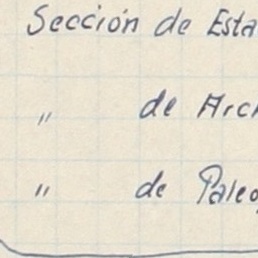 Sección de Esta
" de Arch
" de Paleo